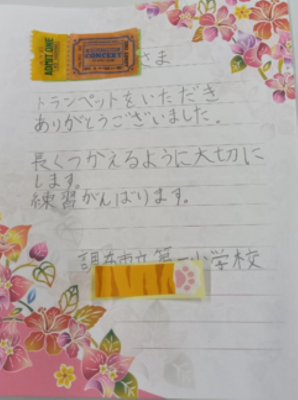 ADMIT ONE
CONCERT
さま
トランペットをいただき
ありがとうございました。
長くつかえるように大切に
します。
練習がんばります。
調布市立第一小学校